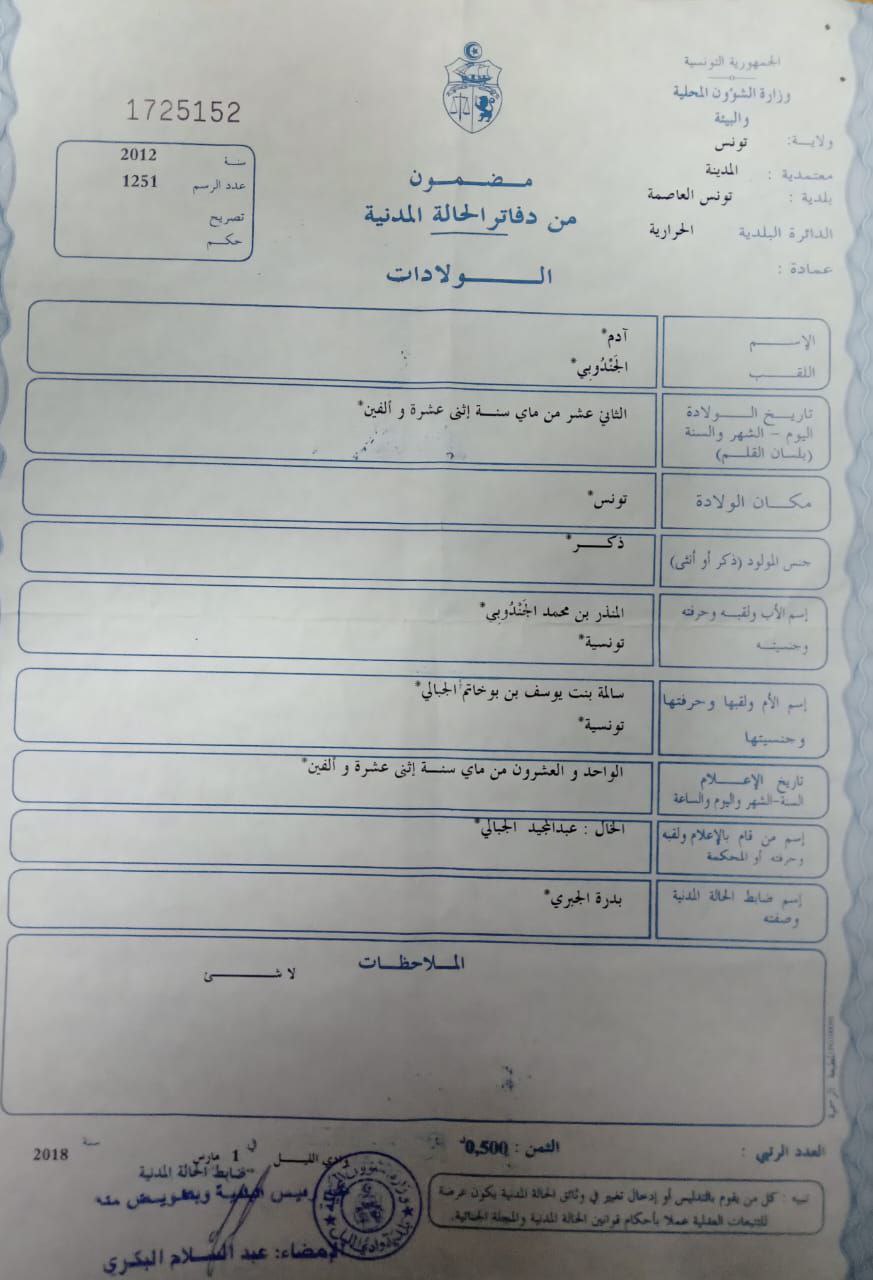 الجمهورية التونسية
وزارة الشؤون المحلية
والبيئة
ولاية: تونس
معتمدية : المدينة
بلدية : تونس العاصمة
الدائرة البلدية الحرارية
عمادة :
1725152
سنة 2012
عدد الرسم 1251
تصريح
حكم
مضمون
من دفاتر الحالة المدنية
الولادات
الإسم آدم*
اللقب الجَنْدُوبِي*
تاريخ الولادة
اليوم - الشهر والسنة
(بلسان القلم)
الثاني عشر من ماي سنة إثنى عشرة و ألفين*
مكان الولادة تونس*
جنس المولود (ذكر أو أنثى) ذكر*
إسم الأب ولقبه وحرفته
وجنسيته
المنذر بن محمد الجَنْدُوبِي*
تونسية*
إسم الأم ولقبها وحرفتها
وجنسيتها
سالمة بنت يوسف بن بوخاتم الجبالي*
تونسية*
تاريخ الإعلام
السنة-الشهر واليوم والساعة
الواحد و العشرون من ماي سنة إثنى عشرة و ألفين*
إسم من قام بالإعلام ولقبه
وحرفته أو المحكمة
الخال : عبدالمجيد الجبالي*
إسم ضابط الحالة المدنية
وصفته
بدرة الجبري*
الملاحظات
لا شئ
العدد الرتبي :
الثمن : 0,500د
وادي الليل في 1 مارس سنة 2018
ضابط الحالة المدنية
رئيس البلدية وبتفويض منه
الإمضاء: عبد السلام البكري
تنبيه : كل من يقوم بالتدليس أو إدخال تغيير في وثائق الحالة المدنية يكون عرضة
للتتبعات العدلية عملا بأحكام قوانين الحالة المدنية والمجلة الجنائية.